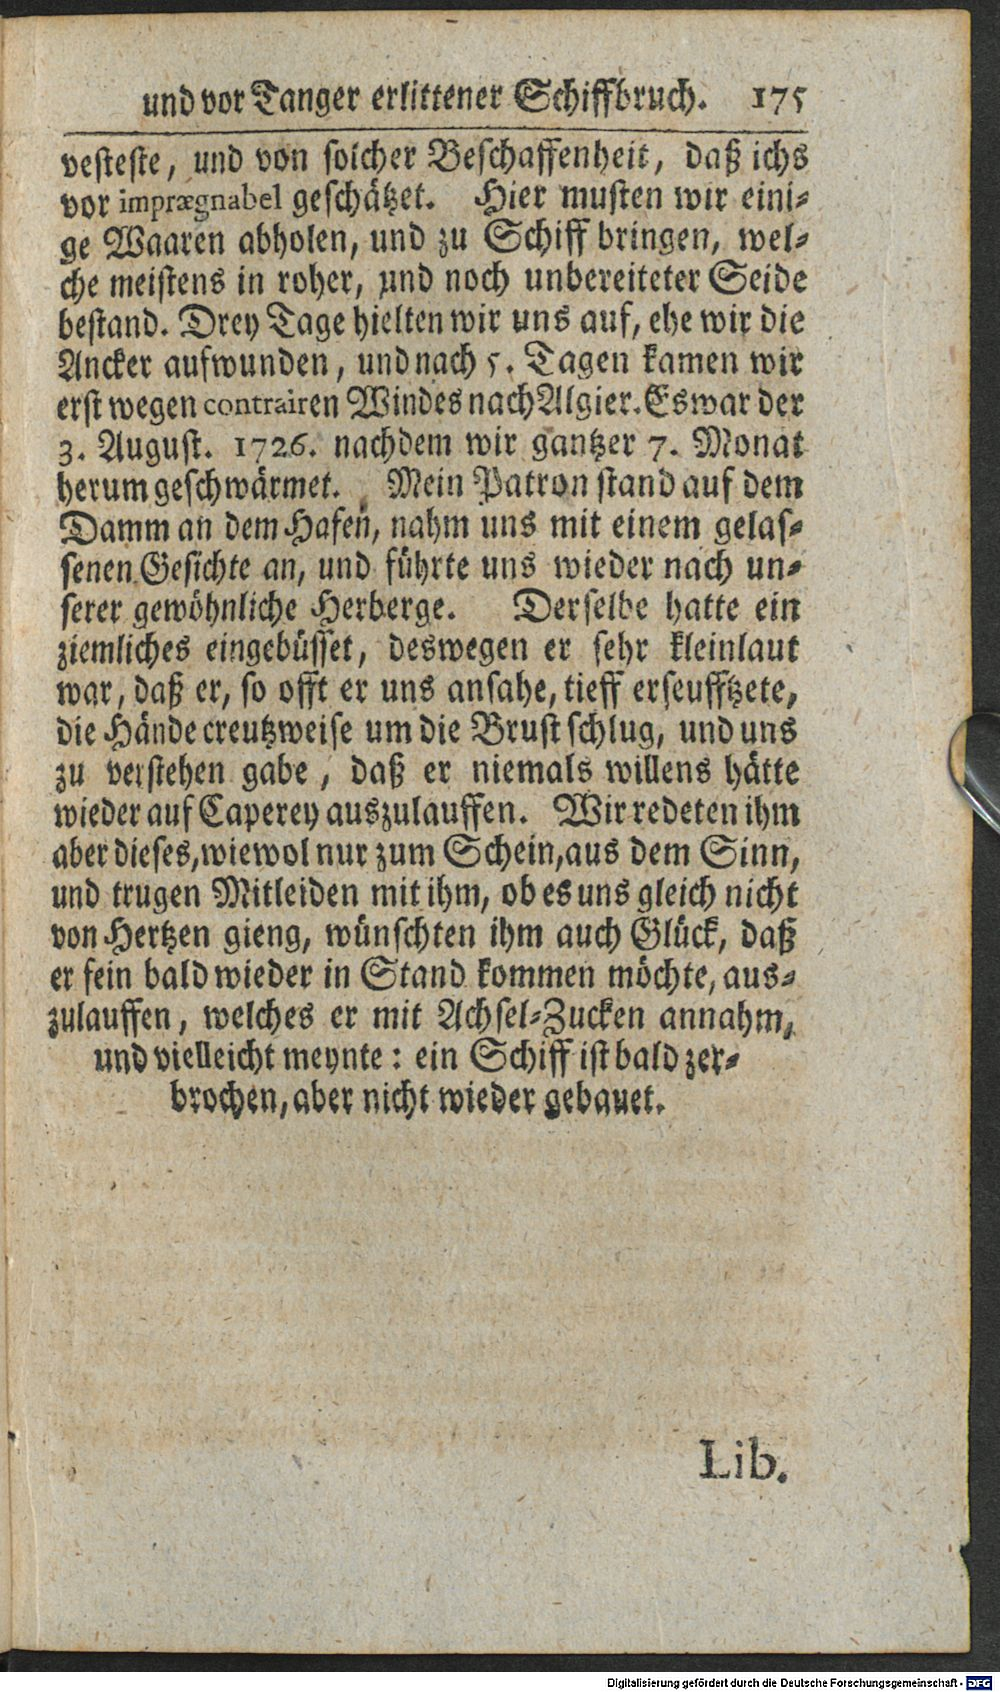 und vor Tanger erlittener Schiffbruch. 175
vesteste, und von solcher Beschaffenheit, daß ichs
vor imprægnabel geschätzet. Hier musten wir eini-
ge Waaren abholen, und zu Schiff bringen, wel-
che meistens in roher, und noch unbereiteter Seide
bestand. Drey Tage hielten wir uns auf, ehe wir die
Ancker aufwunden, und nach 5. Tagen kamen wir
erst wegen contrairen Windes nach Algier. Es war der
3. August. 1726. nachdem wir gantzer 7. Monat
herum geschwärmet. Mein Patron stand auf dem
Damm an dem Hafen, nahm uns mit einem gelas-
senen Gesichte an, und führte uns wieder nach un-
serer gewöhnliche Herberge. Derselbe hatte ein
ziemliches eingebüsset, deswegen er sehr kleinlaut
war, daß er, so offt er uns ansahe, tieff erseufftzete,
die Hände creutzweise um die Brust schlug, und uns
zu verstehen gabe, daß er niemals willens hätte
wieder auf Caperey auszulauffen. Wir redeten ihm
aber dieses, wiewol nur zum Schein, aus dem Sinn,
und trugen Mitleiden mit ihm, ob es uns gleich nicht
von Hertzen gieng, wünschten ihm auch Glück, daß
er fein bald wieder in Stand kommen möchte, aus-
zulauffen, welches er mit Achsel-Zucken annahm,
und vielleicht meynte: ein Schiff ist bald zer-
brochen, aber nicht wieder gebauet.
Lib.
Digitalisierung gefördert durch die Deutsche Forschungsgemeinschaft - DFG